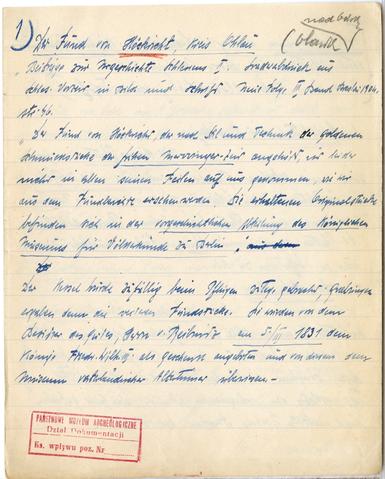 1) Der Fund von Höckricht, Kreis Ohlau
nad Odrą
(Oława)
"Beiträge zur Urgeschichte Schlesiens II. Sonderabdruck aus
Schles. Vorzeit in Bild und Schrift. Neue Folge III Band
str. 46.
"Der Fund von Höckricht der nach Stil und Technik der goldenen
Schmuckstücke der frühen Merowinger-Zeit angehört, ist leider
nicht in allen seinen Teilen auf uns gekommen, wie wir
aus dem Fundberichte ersehen werden. Die erhaltenen Originalstücke
befinden sich in der vorgeschichtlichen Abteilung des Königlichen
Museums für Völkerkunde zu Berlin
Der Kessel wurde zufällig beim Pflügen zutage gebracht, Grabungen
ergaben dann die weiteren Fundstücke. Sie wurden von dem
Besitzer des Gutes, Herrn v. am 5/ 1831 dem
König Friedr. Wilh. III als Geschenk angeboten und von diesem dem
Museum vaterländischer Altertümer überwiesen –
PAŃSTWOWE MUZEUM ARCHEOLOGICZNE
Dział Dokumentacji
Ks. wpływu poz. Nr